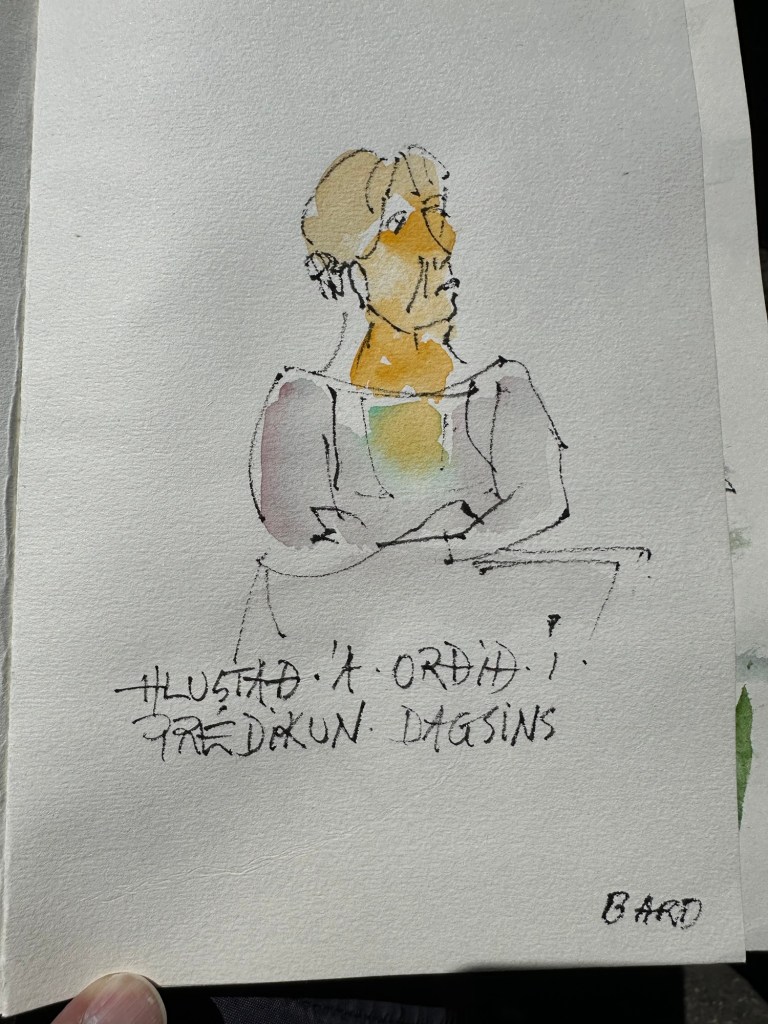 HLUSTAÐ. Á. ORÐIÐ. Í.
PRÉDIKUN. DAGSINS
BARD